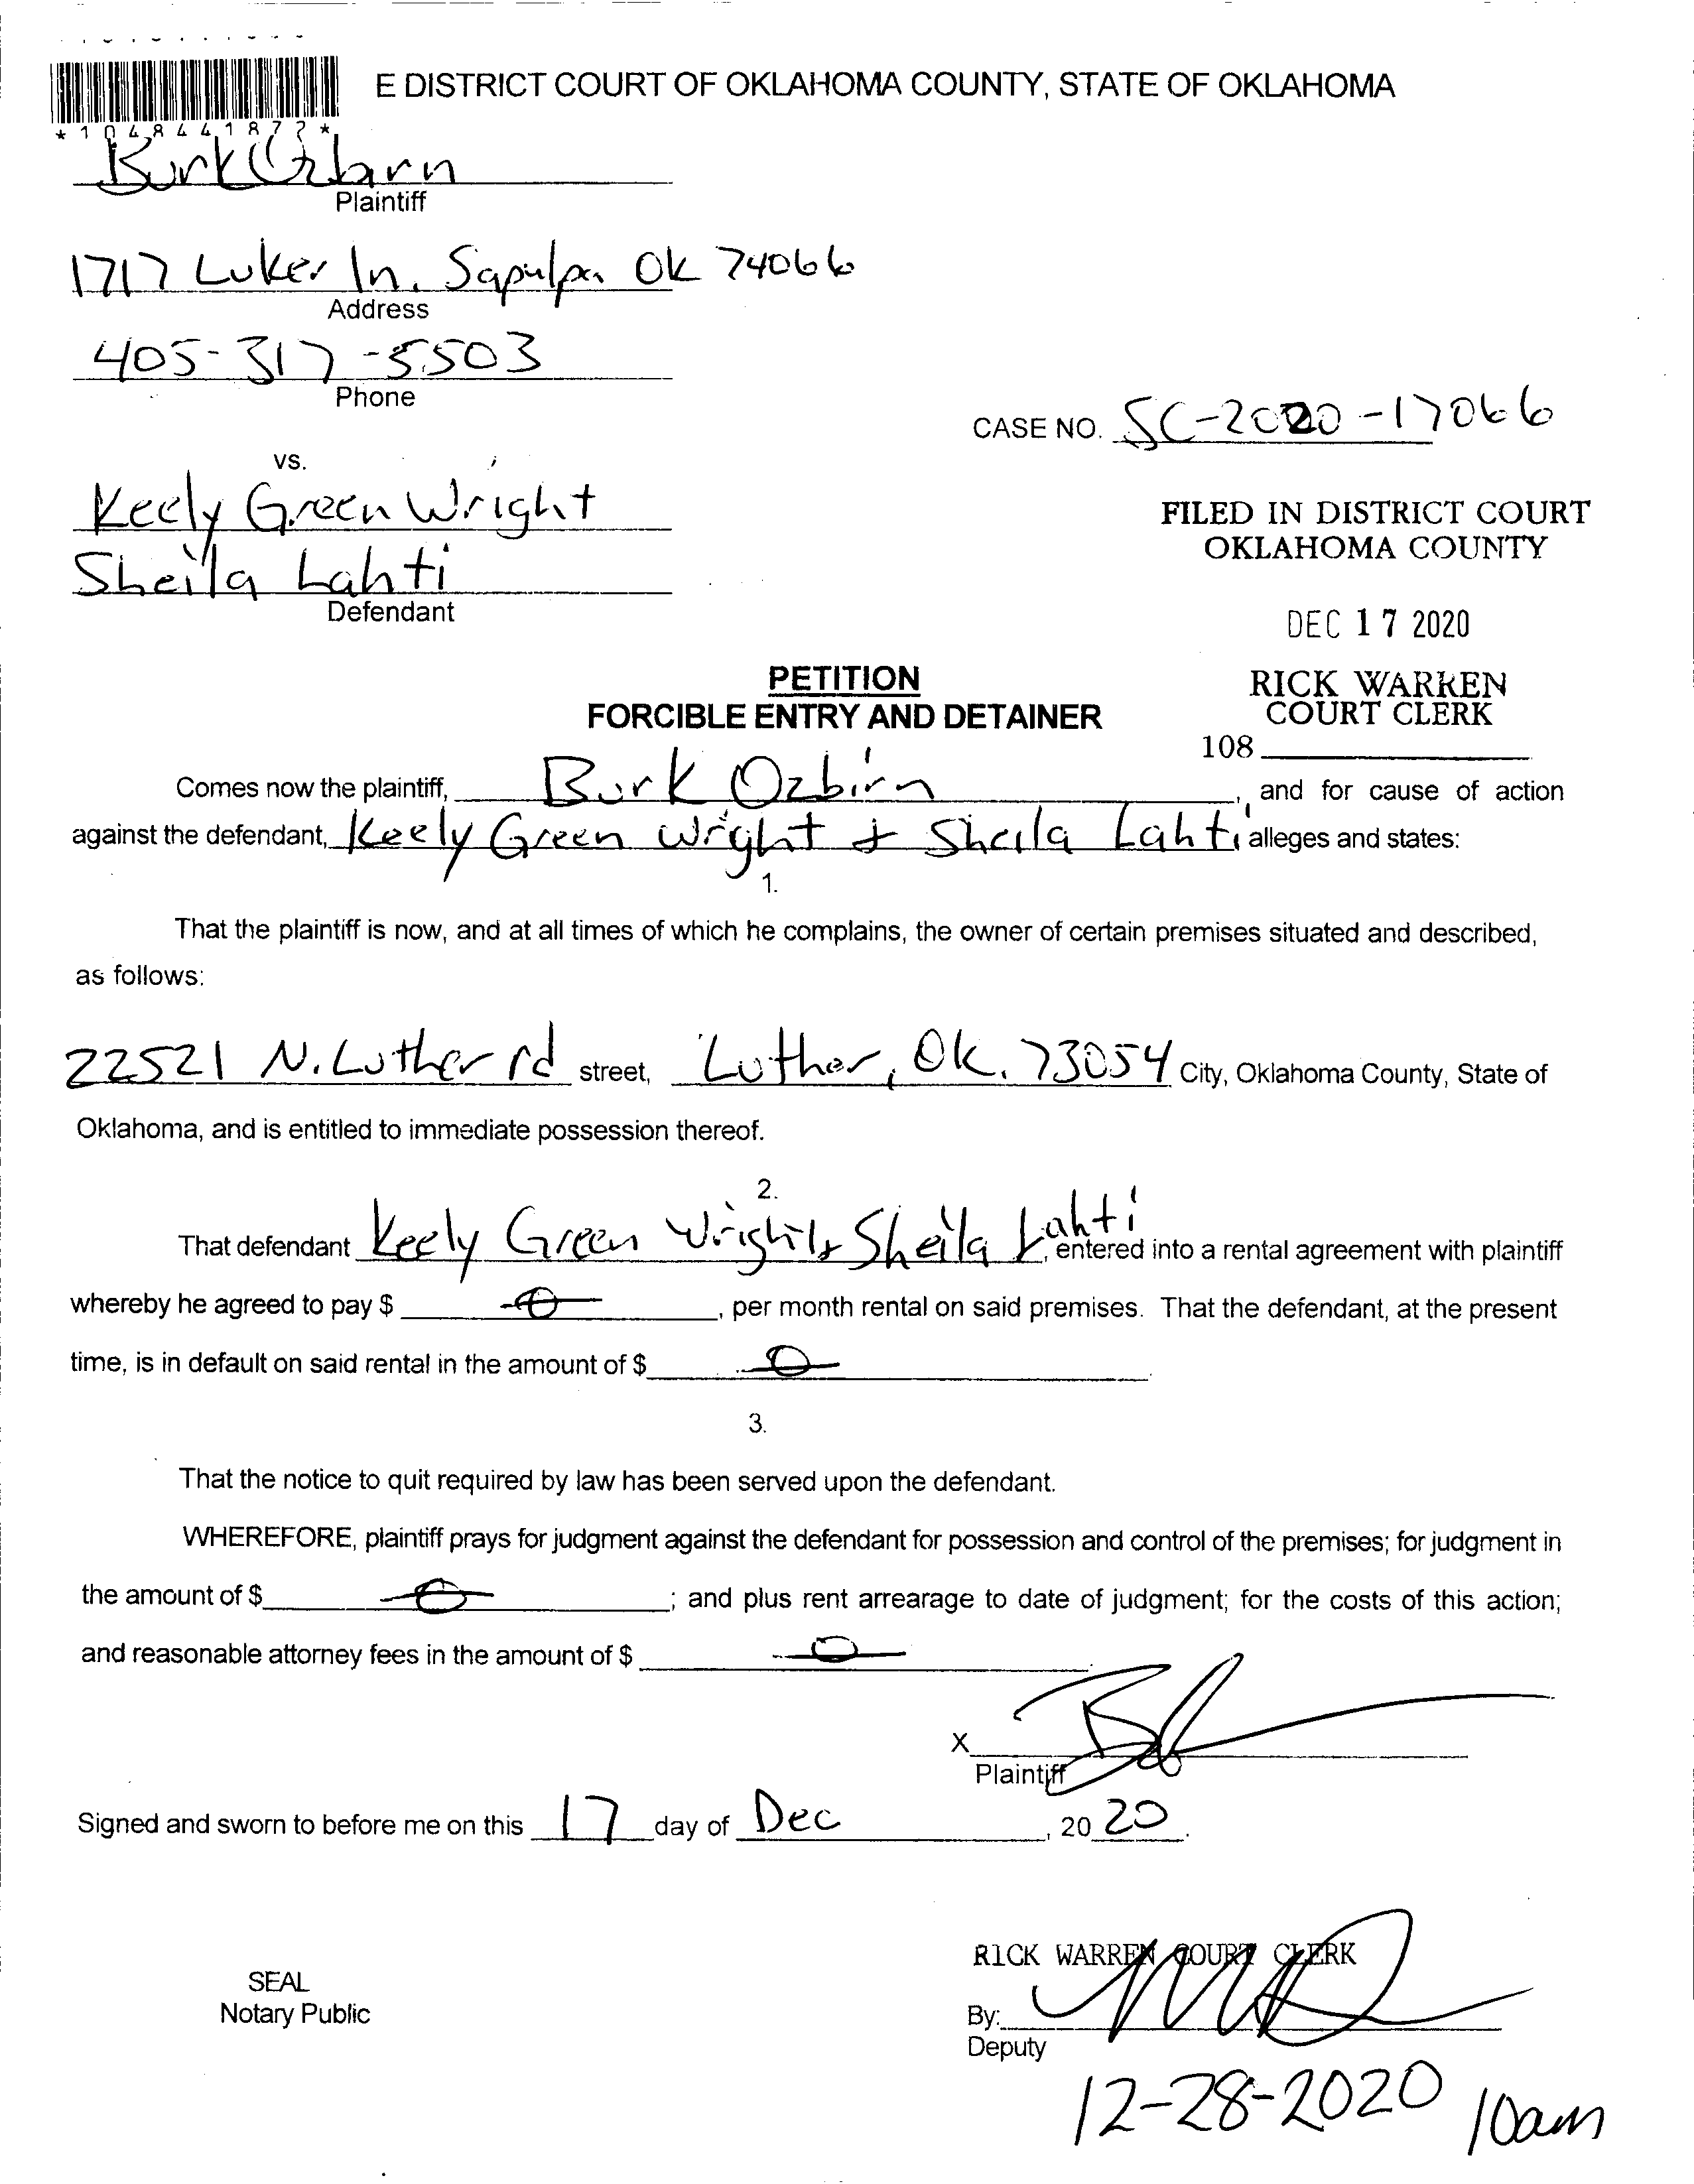 E DISTRICT COURT OF OKLAHOMA COUNTY, STATE OF OKLAHOMA
*1048441872*
Burk Ozbirn
Plaintiff
1717 Luker ln. Sapulpa OK 74066
Address
405-317-5503
Phone
CASE NO. SC-2020-17066
vs.
Keely Green Wright
FILED IN DISTRICT COURT
OKLAHOMA COUNTY
Sheila Lahti
Defendant
DEC 17 2020
PETITION
RICK WARREN
FORCIBLE ENTRY AND DETAINER
COURT CLERK
108
Comes now the plaintiff, Burk Ozbirn, and for cause of action
against the defendant, Keely Green Wright + Sheila Lahti alleges and states:
1.
That the plaintiff is now, and at all times of which he complains, the owner of certain premises situated and described,
as follows:
22521 N. Luther rd street, Luther, Ok. 73054 City, Oklahoma County, State of
Oklahoma, and is entitled to immediate possession thereof.
2.
That defendant Keely Green Wright & Sheila Lahti, entered into a rental agreement with plaintiff
whereby he agreed to pay $ 0, per month rental on said premises. That the defendant, at the present
time, is in default on said rental in the amount of $ 0.
3.
That the notice to quit required by law has been served upon the defendant.
WHEREFORE, plaintiff prays for judgment against the defendant for possession and control of the premises; for judgment in
the amount of $ 0; and plus rent arrearage to date of judgment; for the costs of this action;
and reasonable attorney fees in the amount of $ 0.
X
Plaintiff
Signed and sworn to before me on this 17 day of Dec, 2020.
RICK WARREN COURT CLERK
SEAL
Notary Public
By:
Deputy
12-28-2020 10am